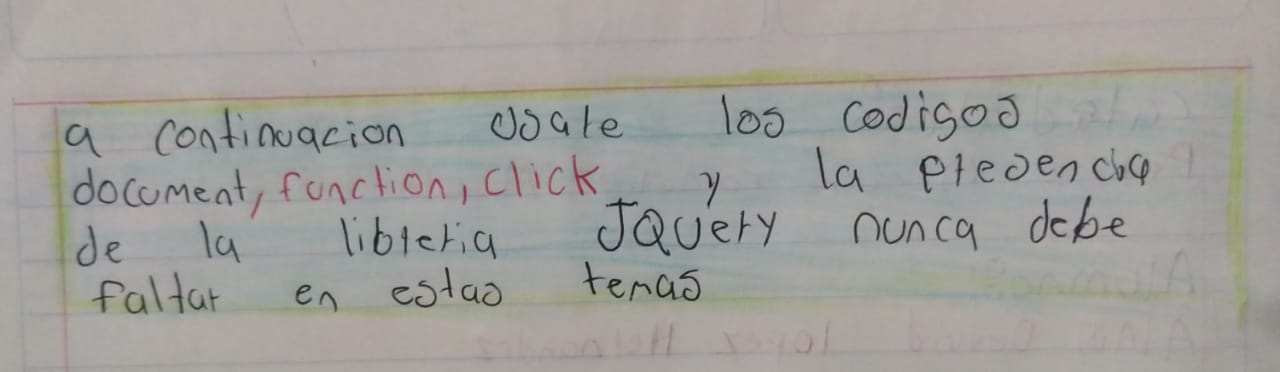 a continuacion usare los codigos
document, function, click y la presencia
de la libreria JQuery nunca debe
faltar en estas temas